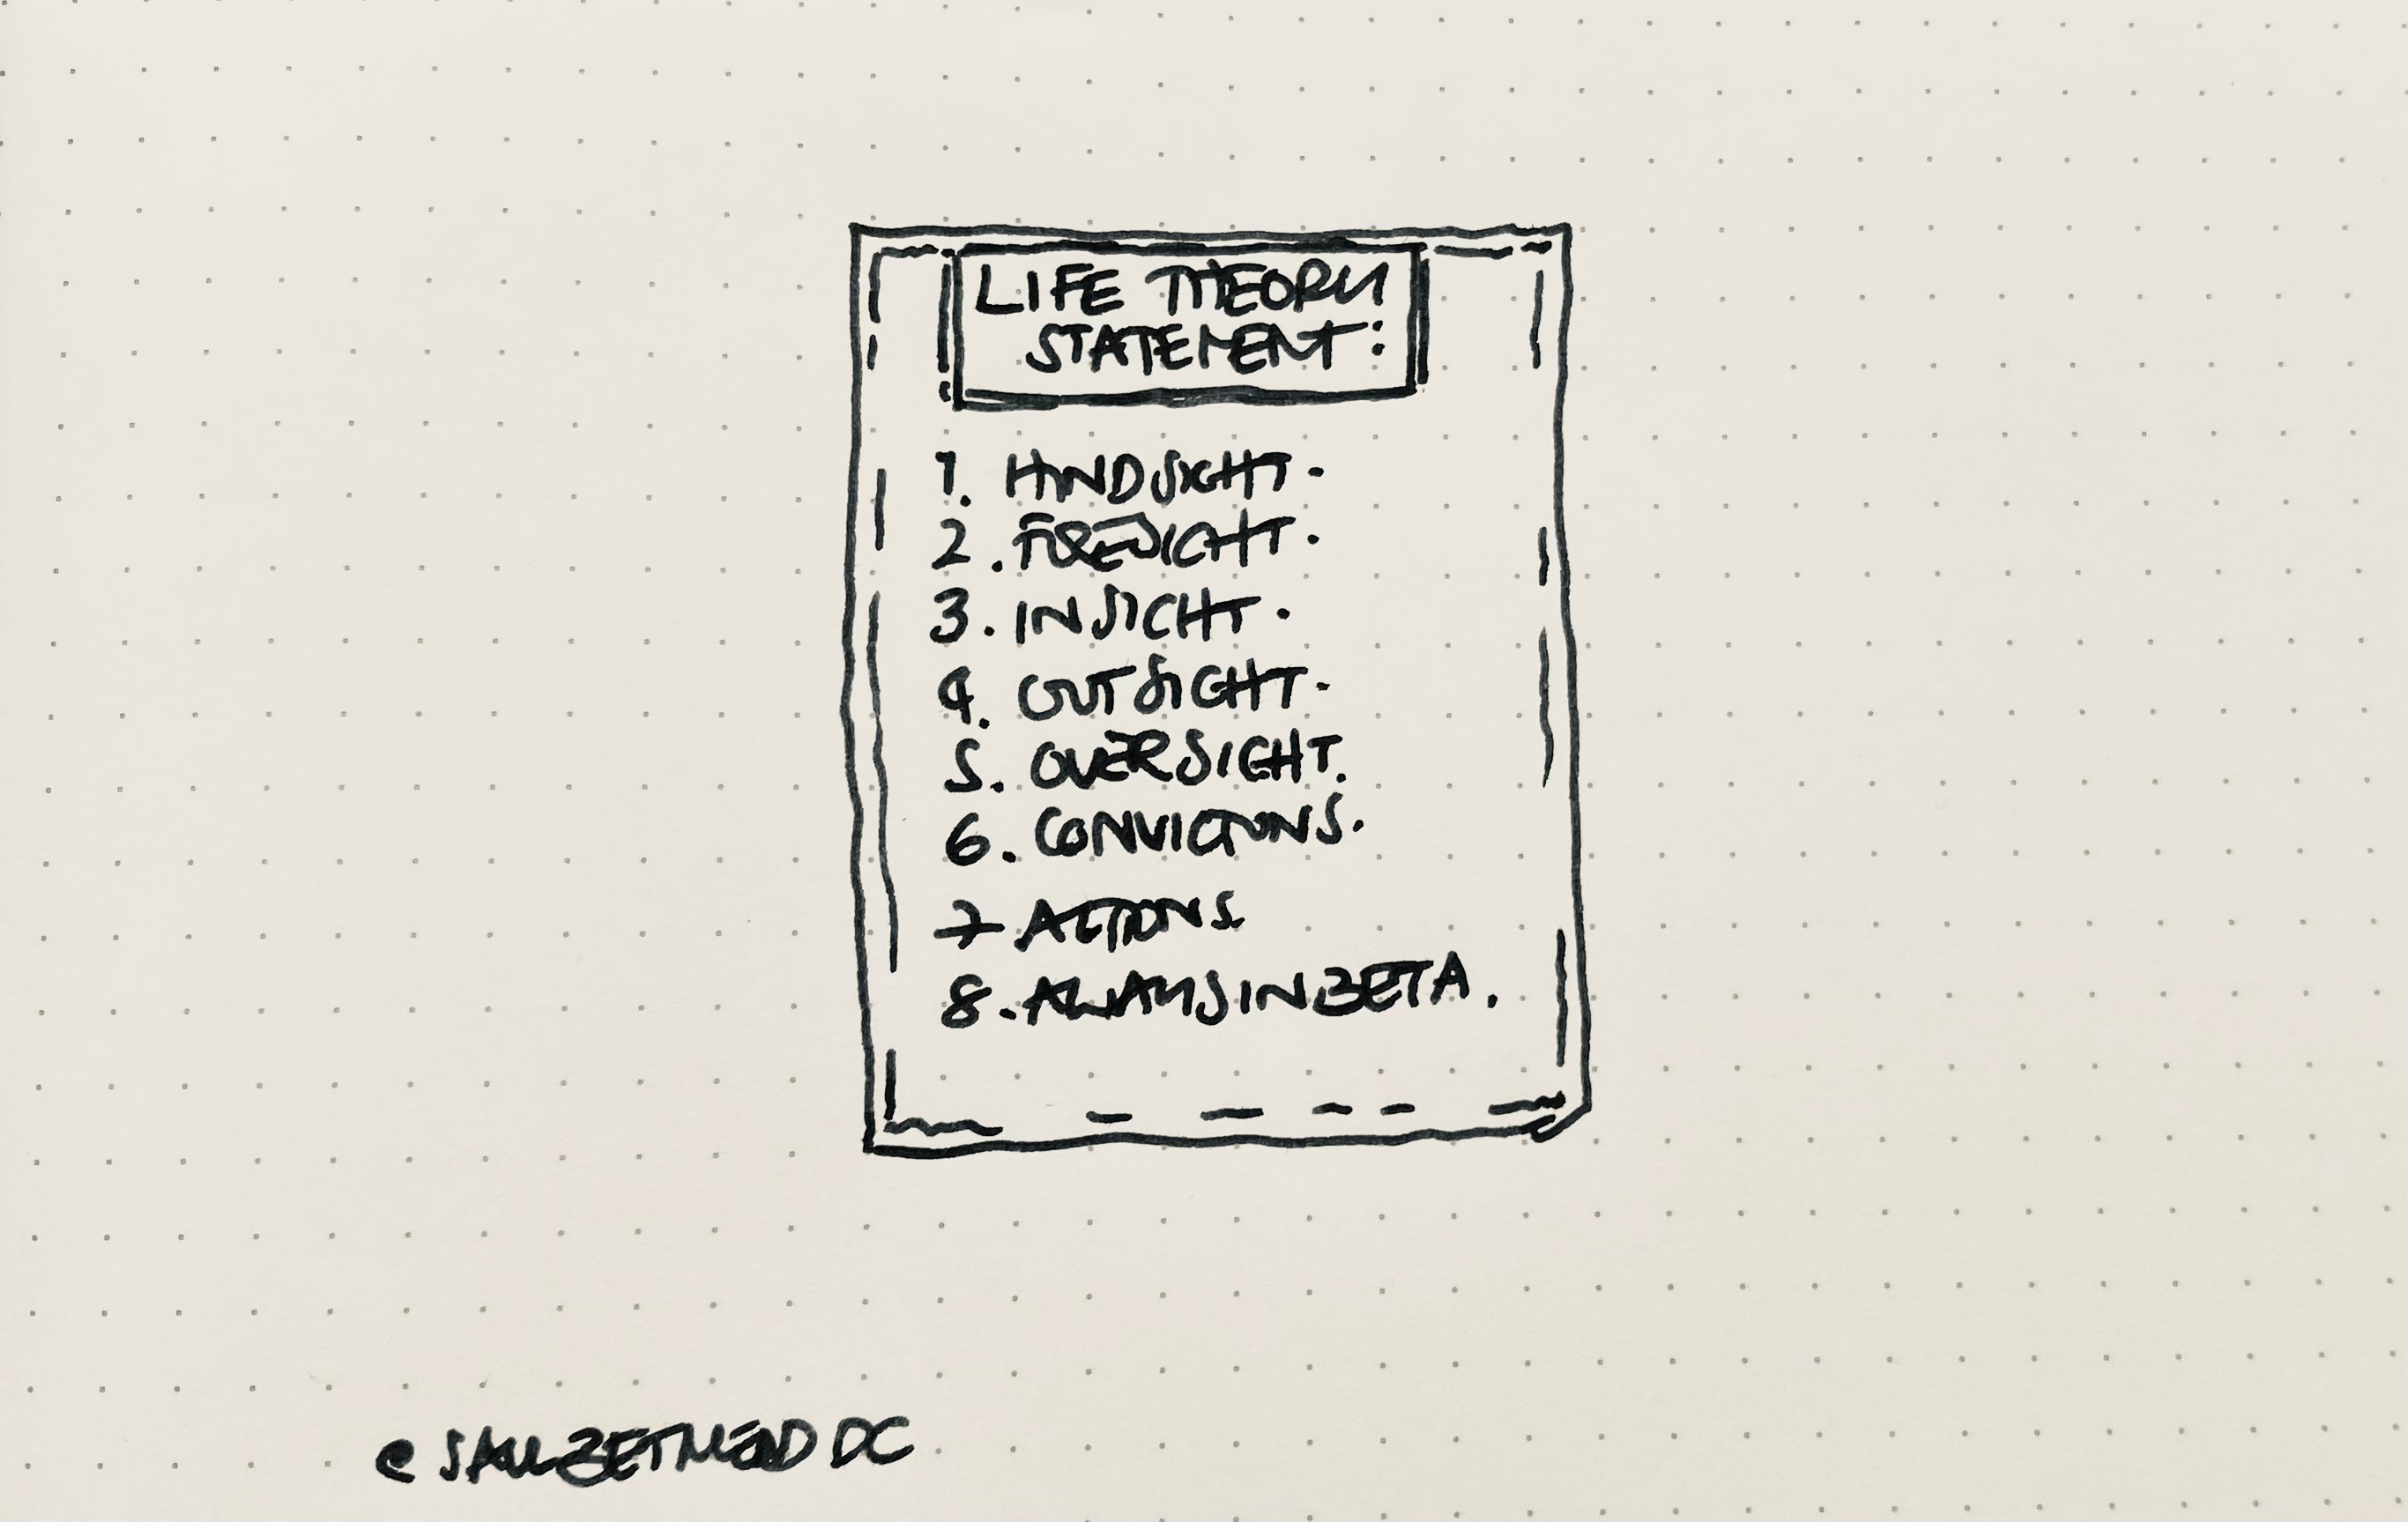 LIFE THEORY
STATEMENT:
1. HINDSIGHT.
2. FORESIGHT.
3. INSIGHT.
4. OUTSIGHT.
5. OVERSIGHT.
6. CONVICTIONS.
7 ACTIONS.
8. ALWAYS IN BETA.
@SAULBETMEADDC